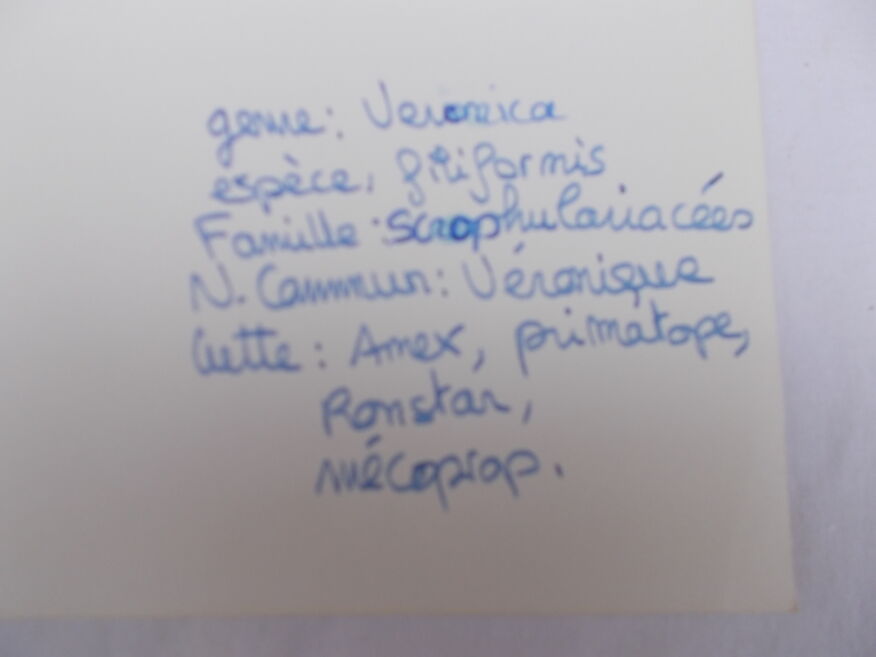 genre: Veronica
espèce: filiformis
Famille: Scrophulariacées
N. Commun: Véronique
Lutte: Amex, primatope,
Ronstar,
mécoprop.